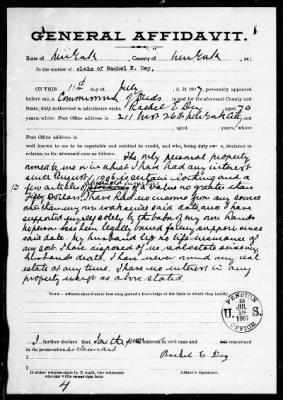 GENERAL AFFIDAVIT.
State of New York, County of New York, ss:
In the matter of claim of Rachel E. Dey,
On this 11th day of July, A. D. 1907, personally appeared
before me, a Commissioner of Deeds in and for the aforesaid County and
State, duly authorized to administer oaths Rachel E. Dey aged 70
years, whose Post Office address is 211 West 26th New York City
aged years, whose
Post Office address is
well known to me to be reputable and entitled to credit, and who, being duly sworn, declared in
relation to the aforesaid case as follows:
The only personal property
owned by me or in which I have had any interest
since August 1906 is certain clothing and a
few articles of of a value no greater than
Fifty Dollars. I have had no income from any source
other than my own work since said date, and I have
supported myself solely by the labor of my own hands
no person has been legally bound for my support since
said date. My husband left no life insurance of
any sort. I have disposed of no real estate since my
husbands death. I have never owned any real
estate at any time. I have no interest in any
property except as above stated
NOTE.—Affiants should state how they gained a knowledge of the facts to which they testify.
PENSION OFFICE
U. S.
JUL
1907
I further declare that I have interest in said case and not concerned
in its prosecution as claimant
Rachel E. Dey
If either witness signs by X mark, two witnesses
who can write must sign here.
Affiant's Signature.
4